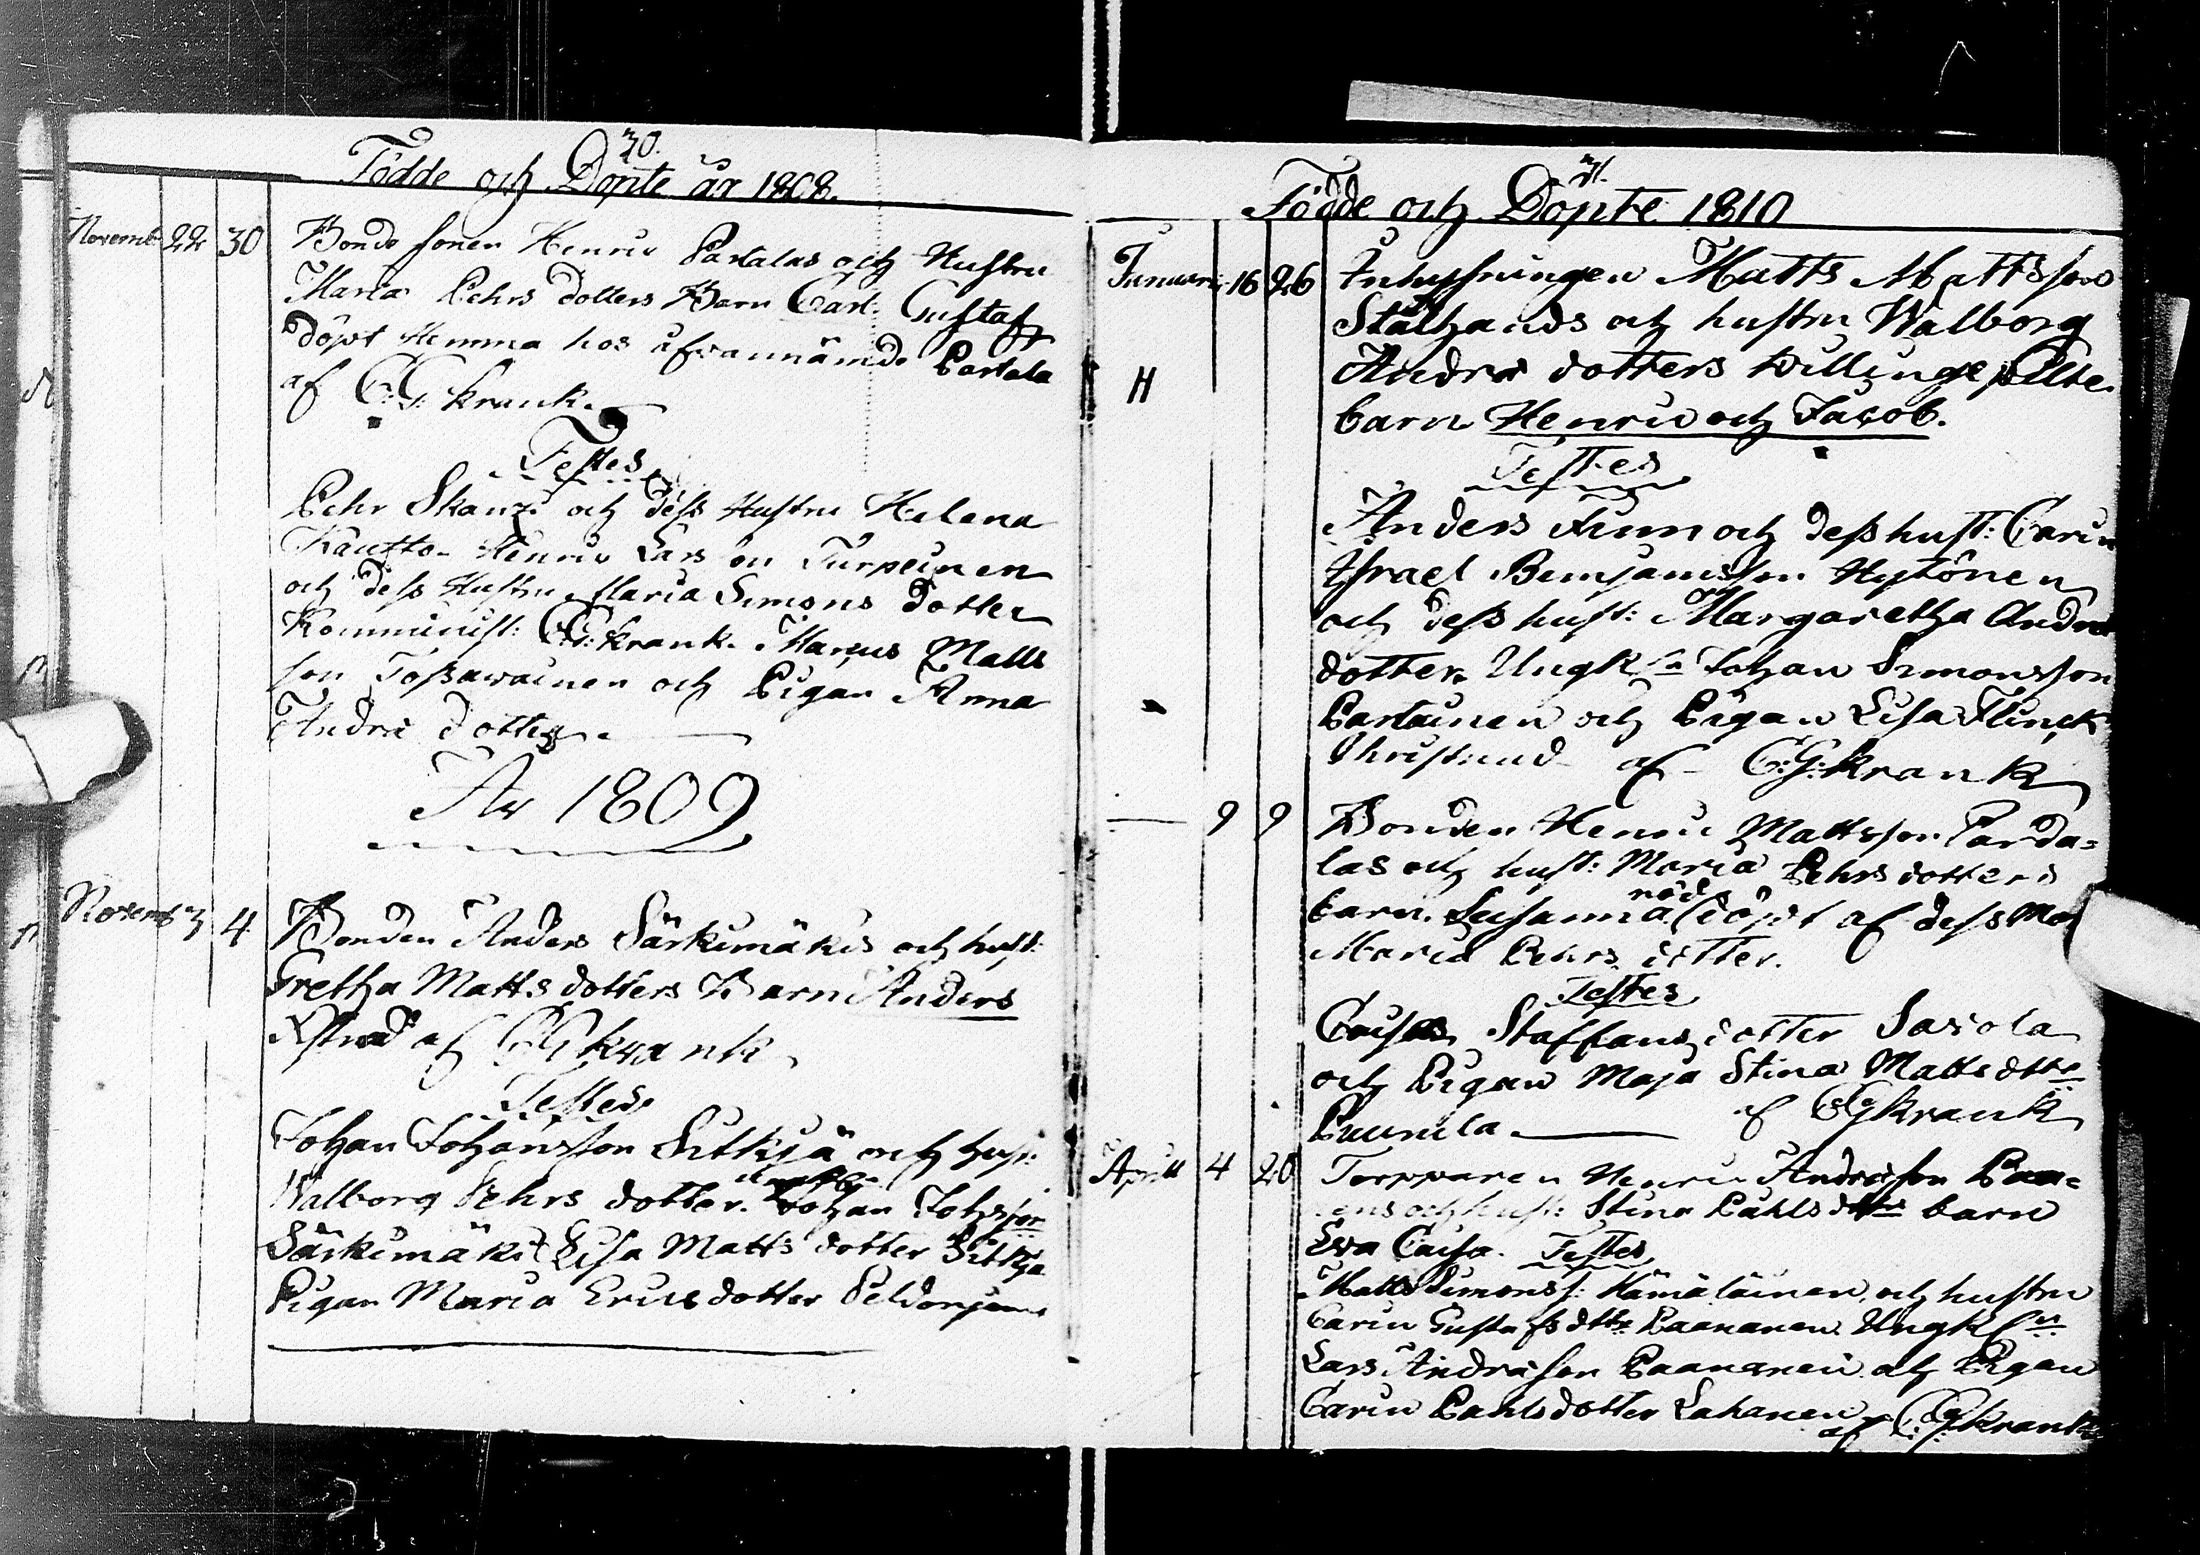 30.
Födde och Döpte år 1808.
Novemb 22 30 Bonde sonen Henric Partalas och Hustru
Maria Pehrs dotters Barn Carl Gustaf
döpt hemma hos ofvannämde Partala
af C:G: krank.
Testes
Pehr Skantz och dess Hustru Helena
Kautto Henric Lars son Turpeinen
och dess Hustru Maria Simons dotter
Komminist: C:G: krank. Marcus Matts
son Tossawainen och Pigan Anna
Andrs dotter.
År 1809
Novemb 3 4 Bonden Anders Särkimäkis och hust:
Gretha Matts dotters Barn Anders
af CG krank
Testes
Johan Johansson Sitkjä och hust:
Walborg Pehrs dotter. Johan Johsson
Särkimäki Lisa Matts dotter Sitkja
Pigan Maria Erics dotter
31.
Födde och Döpte 1810
Januari 16 26 Inhysingen Matts Mattsson
Stålhands och hustru Walborg
Andrs dotters tvillinge pillte
H
barn Henric och Jacob.
Testes
Anders Funn och dess hust: Carin
Israel Benjamsson Hytönen
och dess hust: Margaretha Andrs
dotter. Ungk:n Johan Simonsson
Partainen och Pigan Lisa Flinck
Christnad af C:G: krank
— 9 9 Bonden Henric Mattsson Parda=
las och hust: Maria Pehrs dotters
nöd
barn. Susanna döpt af dess Mor
Maria Pehrs dotter.
Testes
Caisa Staffans dotter Savola
och Pigan Maja Stina Matts dtter
Puurula af CG krank
Aprill 4 20 Torpparen Henric Andersson Paa=
nens och hust: Stina Pahls dtters barn
Eva Caisa. Testes
Matts Simonss: Hämäläinen och hustru
Carin Gustafs dttr Paananen Ungk:n
Lars Andersson Paananen och Pigan
Carin Pahlsdotter Lahanen
af C:G: krank